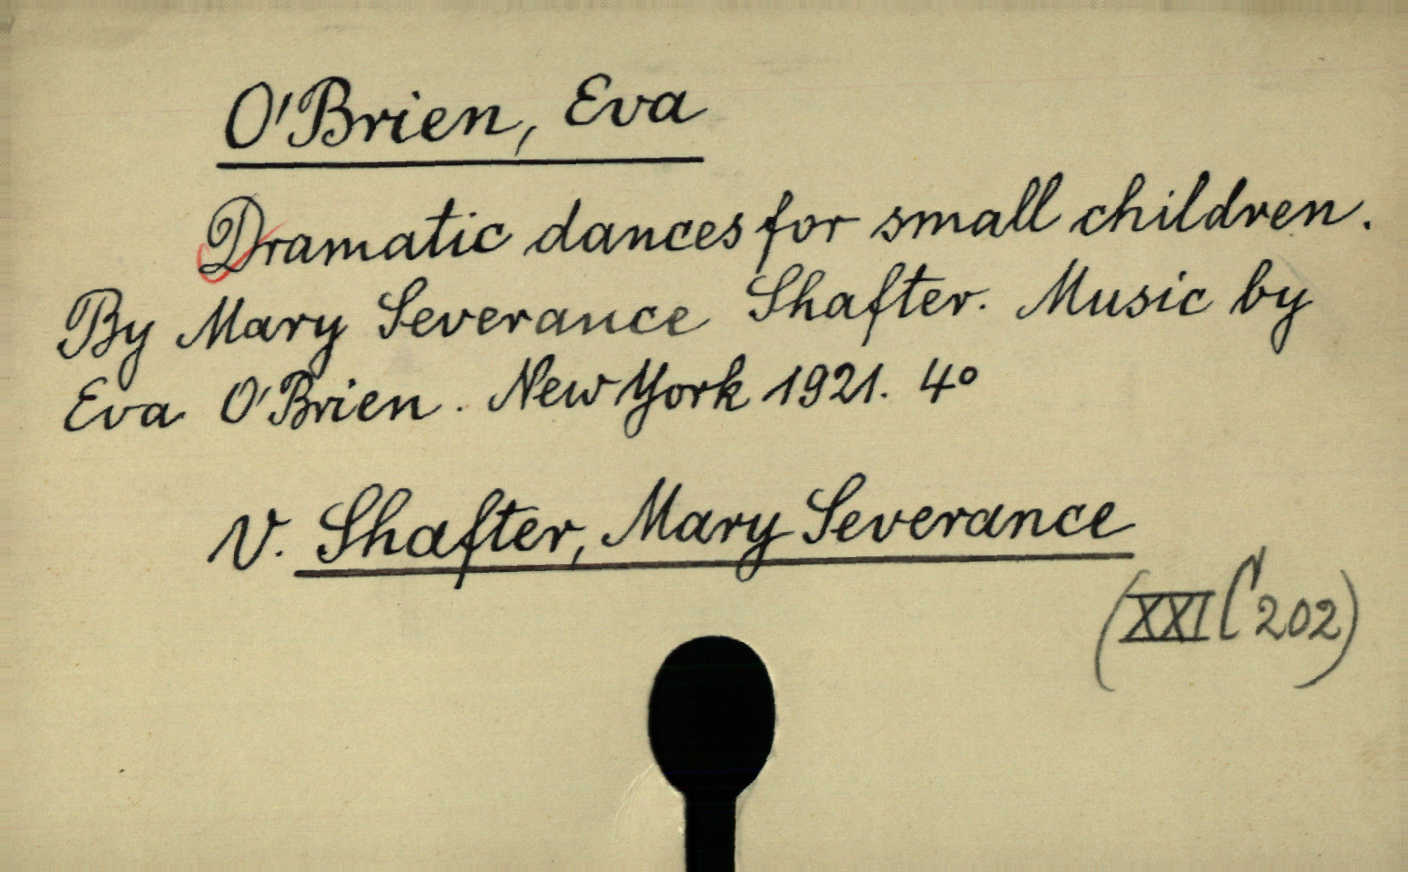 O'Brien, Eva
Dramatic dances for small children.
By Mary Severance Shafter. Music by
Eva O'Brien. New York 1921. 4º
V. Shafter, Mary Severance
(XXI C 202)